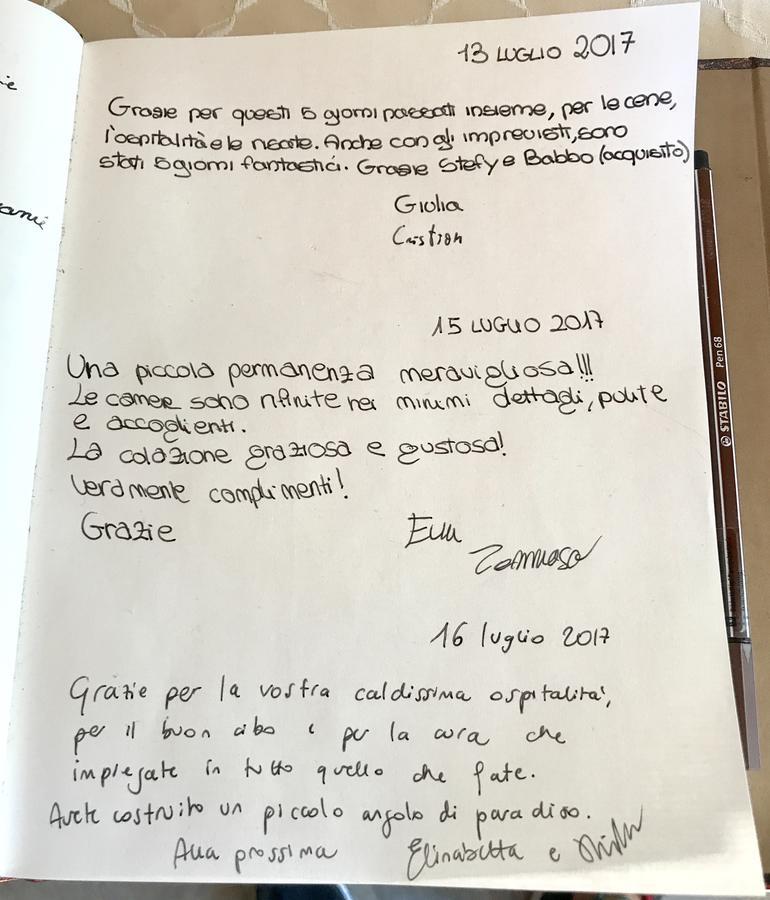 13 LUGLIO 2017
Grazie per questi 5 giorni passati insieme, per le cene,
l'ospitalità e le risate. Anche con gli imprevisti, sono
stati 5 giorni fantastici. Grazie Stefy e Babbo (acquisito)
Giulia
15 LUGLIO 2017
Una piccola permanenza meravigliosa!!!
Le camere sono rifinite nei minimi dettagli, pulite
e accoglienti.
La colazione graziosa e gustosa!
Veramente complimenti!
Grazie
Tommaso
16 luglio 2017
Grazie per la vostra caldissima ospitalità,
per il buon cibo e per la cura che
impiegate in tutto quello che fate.
Avete costruito un piccolo angolo di paradiso.
Alla prossima
Elisabetta e
STABILO Pen 68